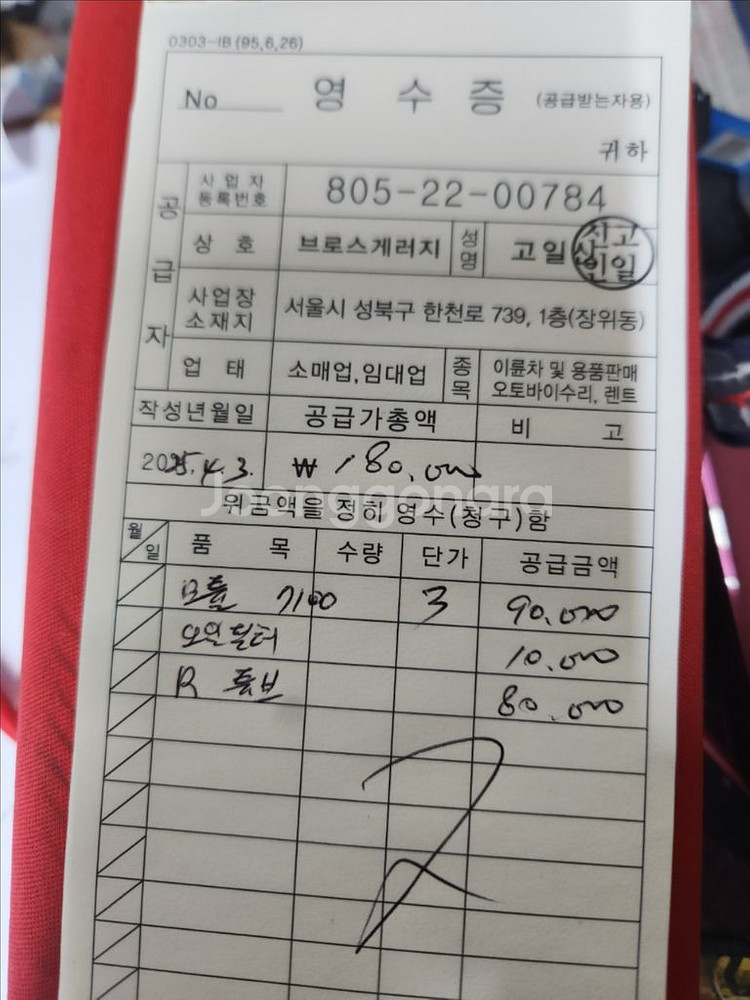 0303-IB (95,6,26)
No 영 수 증 (공급받는자용)
귀하
공급자
사업자등록번호 805-22-00784
상 호 브로스게러지 성명 고일신 신고인일
사업장소재지 서울시 성북구 한천로 739, 1층(장위동)
업 태 소매업,임대업 종목 이륜차 및 용품판매 오토바이수리, 렌트
작성년월일 공급가총액 비 고
2025.4.3. ₩ 180,000
Joonggonara
위금액을 정히 영수(청구)함
월일 품 목 수량 단가 공급금액
7100 3 90,000
오일필터 10,000
R 튜브 80,000